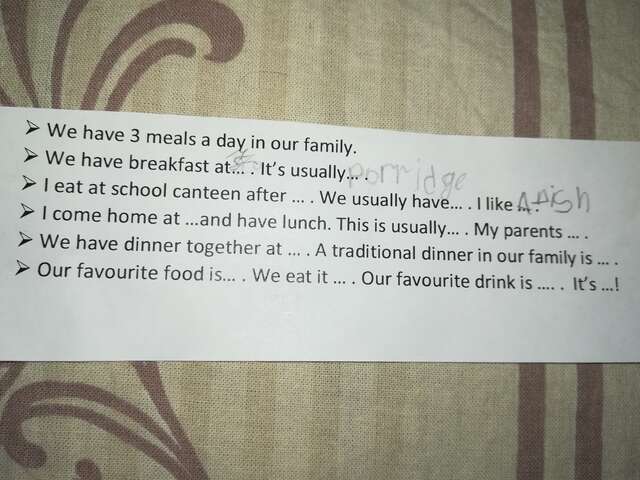 ➢ We have 3 meals a day in our family.
➢ We have breakfast at... . It's usually... . porridge
➢ I eat at school canteen after ... . We usually have... . I like ... .
➢ I come home at ...and have lunch. This is usually... . My parents ... .
➢ We have dinner together at ... . A traditional dinner in our family is ... .
➢ Our favourite food is... . We eat it ... . Our favourite drink is .... . It's ...!